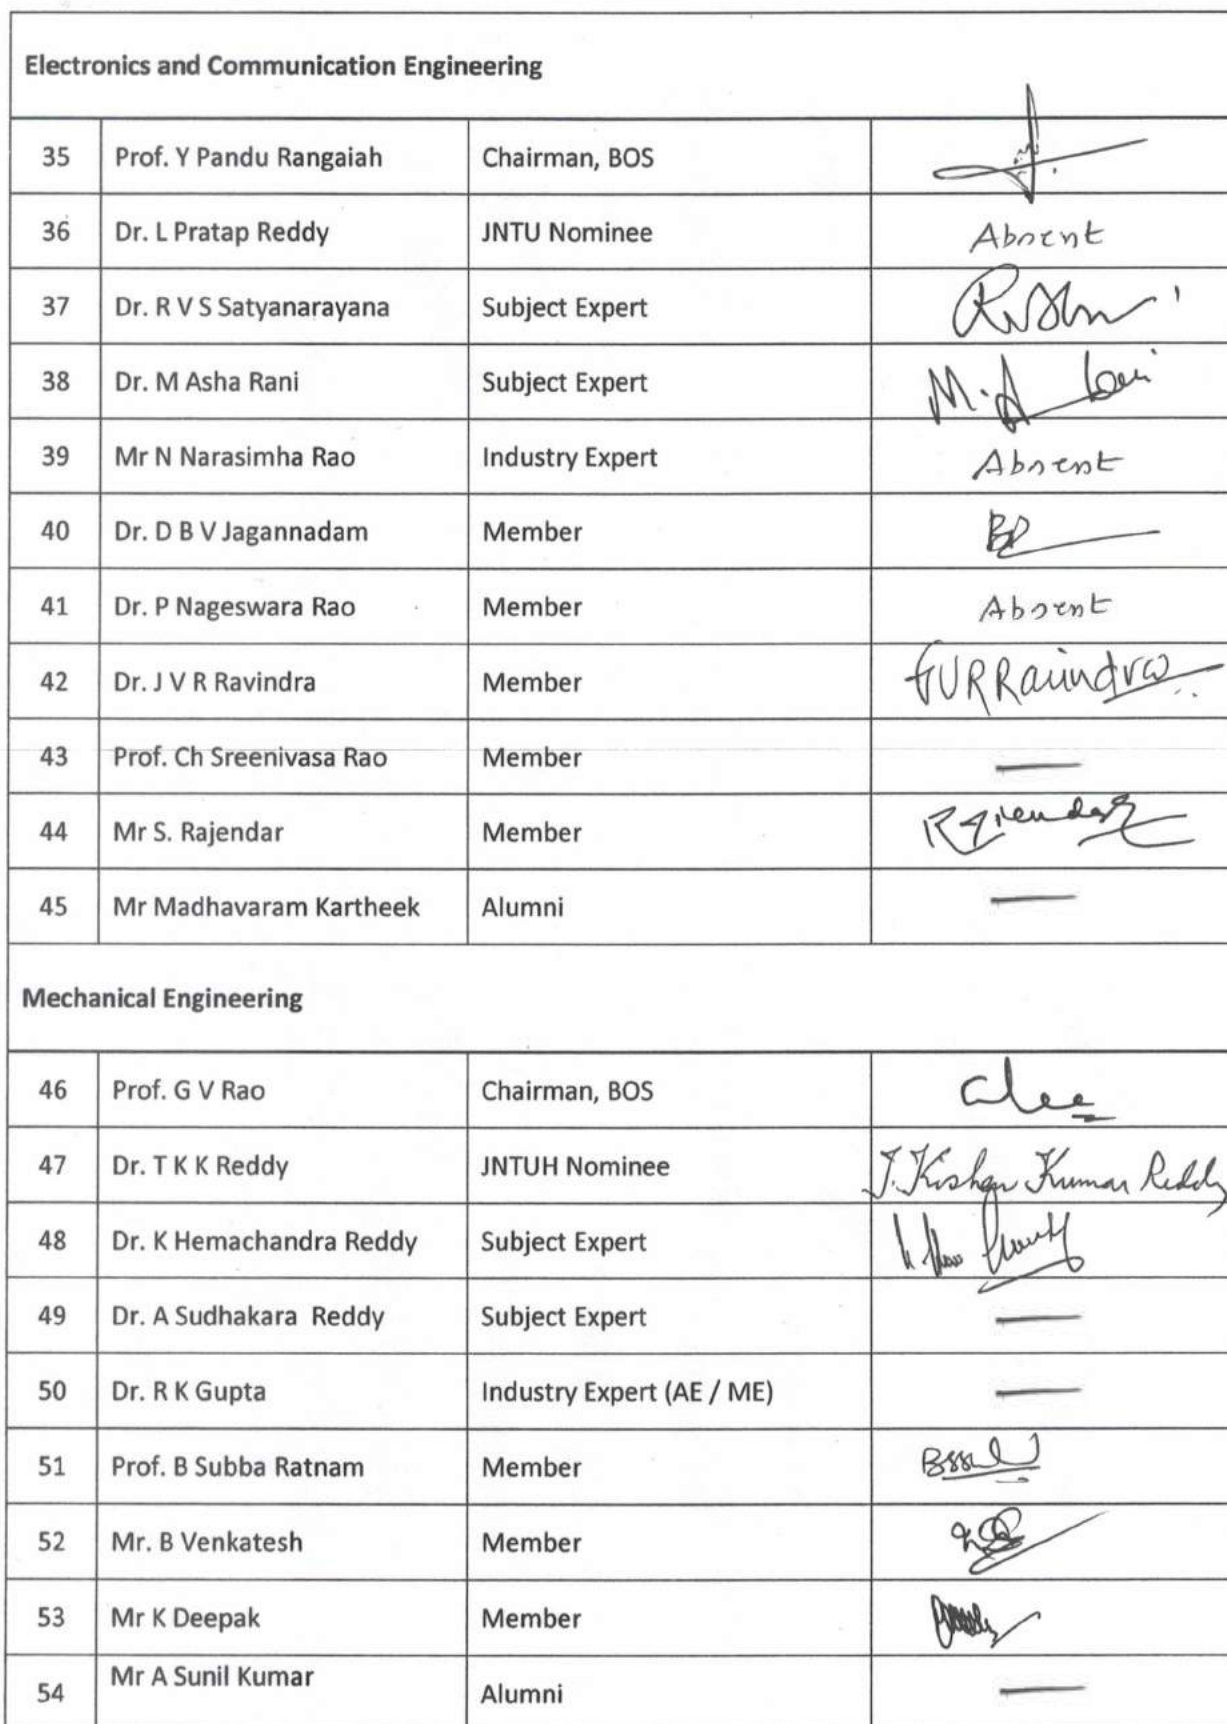 Electronics and Communication Engineering
35 Prof. Y Pandu Rangaiah Chairman, BOS
36 Dr. L Pratap Reddy JNTU Nominee Absent
37 Dr. R V S Satyanarayana Subject Expert
38 Dr. M Asha Rani Subject Expert
39 Mr N Narasimha Rao Industry Expert Absent
40 Dr. D B V Jagannadam Member
41 Dr. P Nageswara Rao Member Absent
42 Dr. J V R Ravindra Member
43 Prof. Ch Sreenivasa Rao Member —
44 Mr S. Rajendar Member Rajendar
45 Mr Madhavaram Kartheek Alumni —
Mechanical Engineering
46 Prof. G V Rao Chairman, BOS
47 Dr. T K K Reddy JNTUH Nominee T. Kishen Kumar Reddy
48 Dr. K Hemachandra Reddy Subject Expert
49 Dr. A Sudhakara Reddy Subject Expert —
50 Dr. R K Gupta Industry Expert (AE / ME) —
51 Prof. B Subba Ratnam Member
52 Mr. B Venkatesh Member
53 Mr K Deepak Member
54 Mr A Sunil Kumar Alumni —